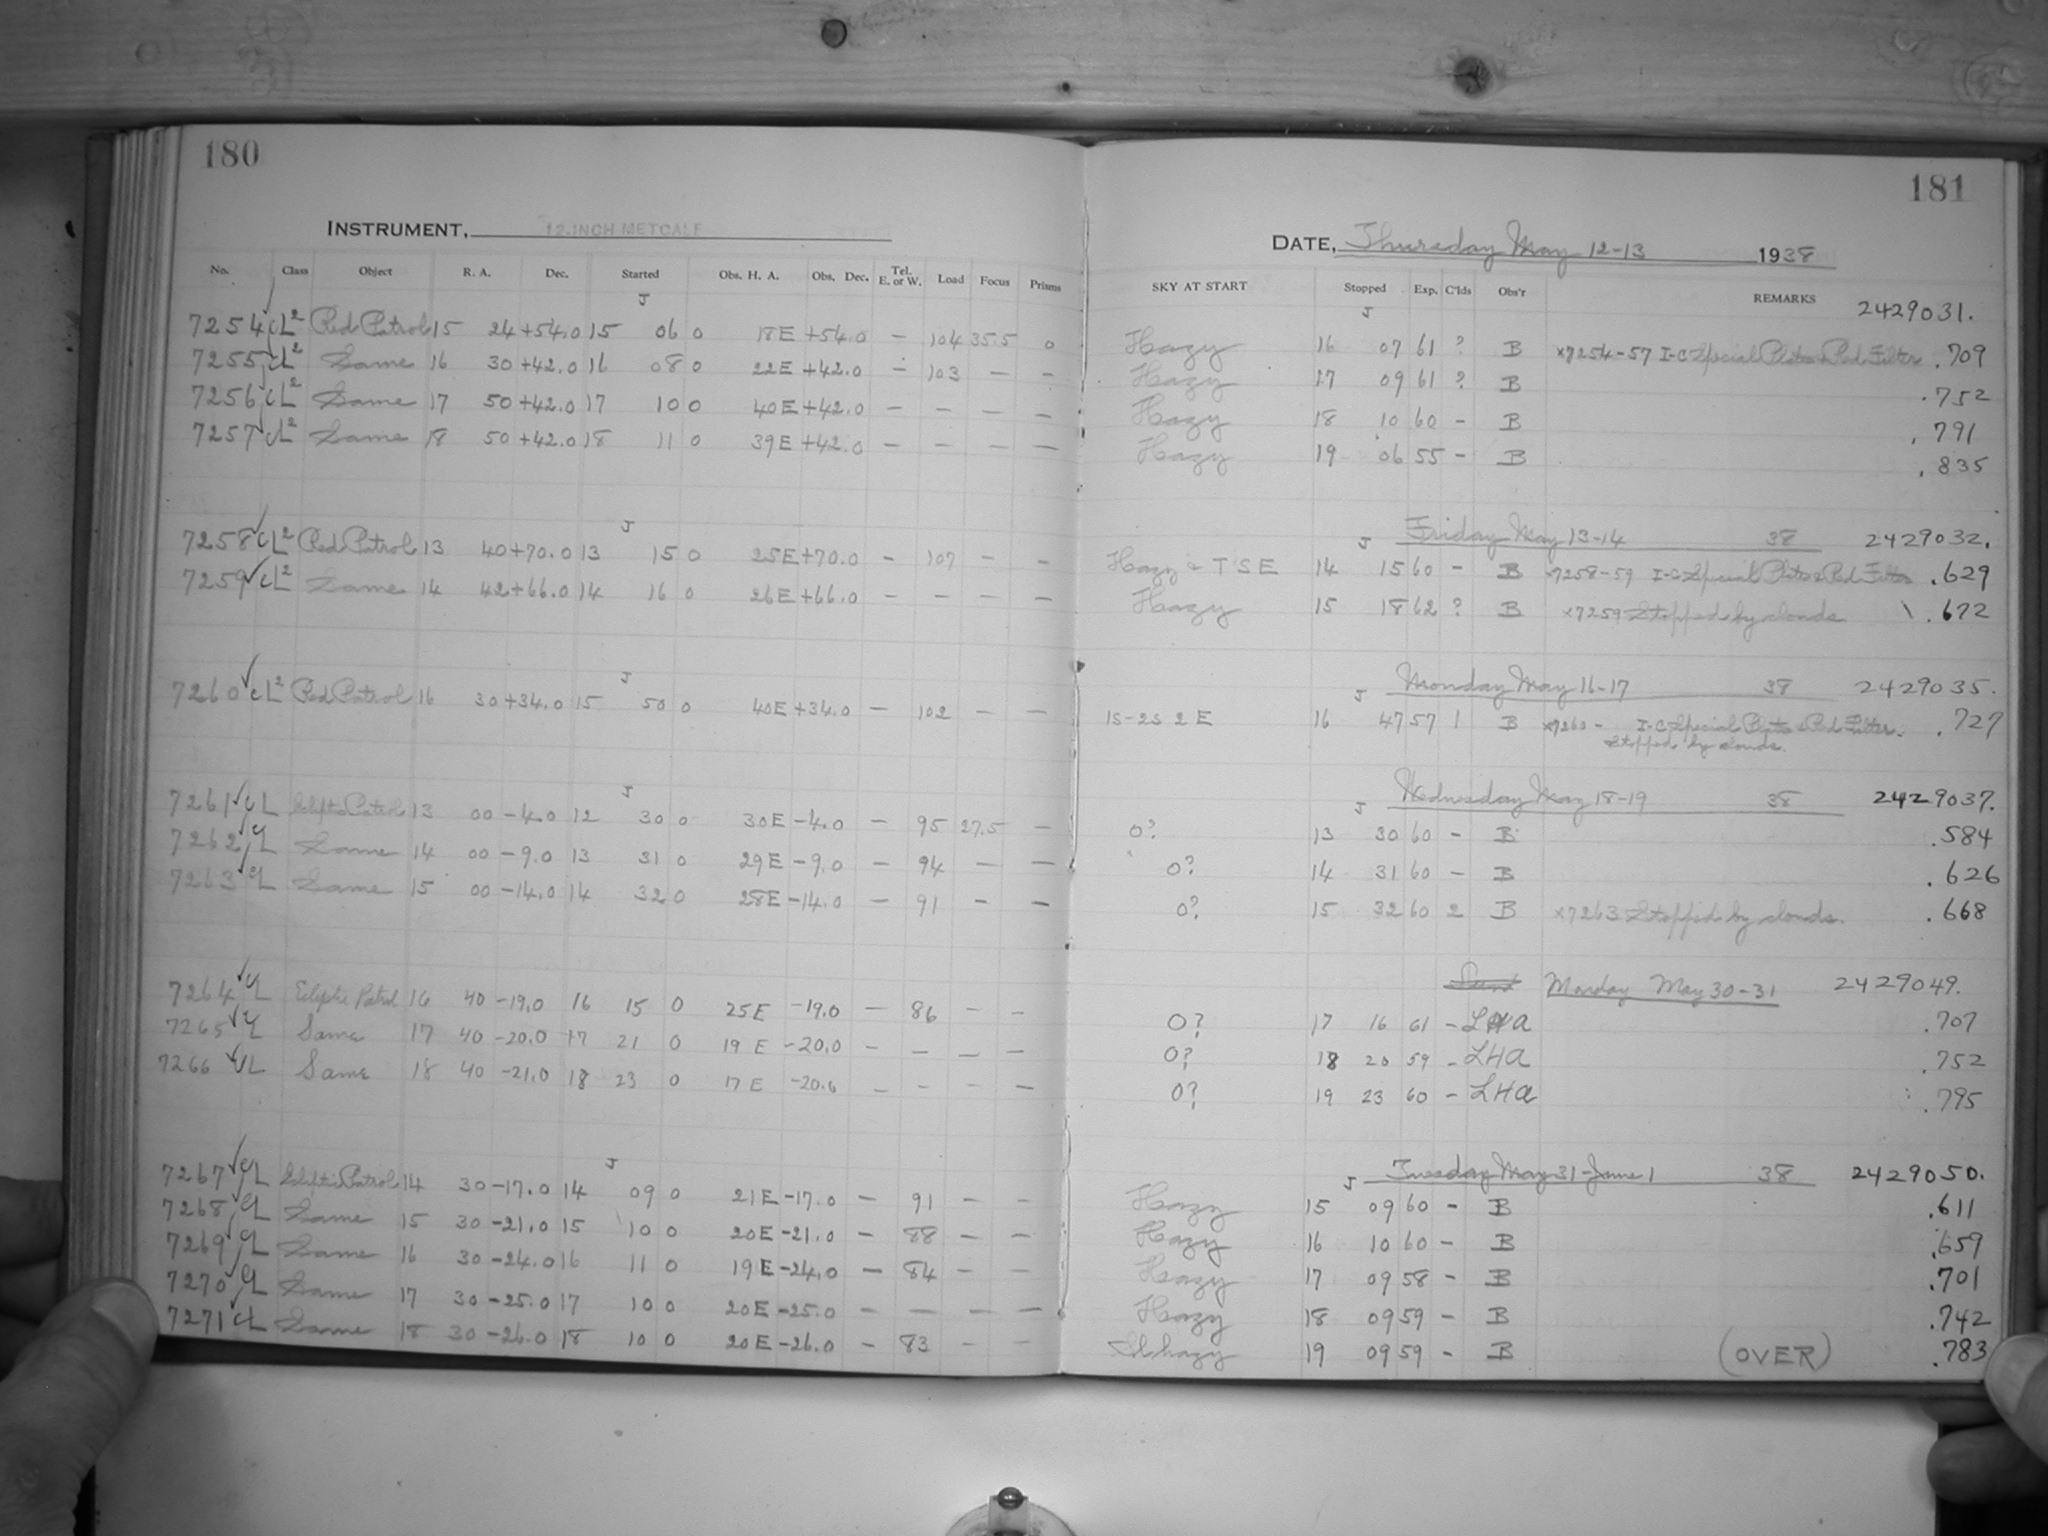 180
INSTRUMENT, 12-INCH METCALF
No. Class Object R. A. Dec. Started Obs. H. A. Obs. Dec. Tel. E. or W. Load Focus Prisms
J
7254 cL2 Red Patrol 15 24 +54.0 15 06 0 18E +54.0 - 104 35.5 0
7255 cL2 Same 16 30 +42.0 16 08 0 22E +42.0 - 103 - -
7256 cL2 Same 17 50 +42.0 17 10 0 40E +42.0 - - - -
7257 cL2 Same 18 50 +42.0 18 11 0 39E +42.0 - - - -
J
7258 cL2 Red Patrol 13 40 +70.0 13 15 0 25E +70.0 - 107 - -
7259 cL2 Same 14 42 +66.0 14 16 0 26E +66.0 - - - -
J
7260 cL2 Red Patrol 16 30 +34.0 15 50 0 40E +34.0 - 102 - -
J
7261 cL Patrol 13 00 -4.0 12 30 0 30E -4.0 - 95 27.5 -
7262 cL Same 14 00 -9.0 13 31 0 29E -9.0 - 94 - -
7263 cL Same 15 00 -14.0 14 32 0 28E -14.0 - 91 - -
7264 cL Ecliptic Patrol 16 40 -19.0 16 15 0 25E -19.0 - 86 - -
7265 cL Same 17 40 -20.0 17 21 0 19 E -20.0 - - - -
7266 cL Same 18 40 -21.0 18 23 0 17 E -20.6 - - - -
J
7267 cL Patrol 14 30 -17.0 14 09 0 21E -17.0 - 91 - -
7268 cL Same 15 30 -21.0 15 10 0 20E -21.0 - 88 - -
7269 cL Same 16 30 -24.0 16 11 0 19E -24.0 - 84 - -
7270 cL Same 17 30 -25.0 17 10 0 20E -25.0 - - - -
7271 cL Same 18 30 -26.0 18 10 0 20E -26.0 - 83 - -
181
DATE, Thursday May 12-13 1938
SKY AT START Stopped Exp. C'lds Obs'r REMARKS
J 2429031.
Hazy 16 07 61 ? B x7254-57 I-C Special Plates & Red Filter .709
Hazy 17 09 61 ? B .752
Hazy 18 10 60 - B .791
Hazy 19 06 55 - B .835
J Friday May 13-14 38 2429032.
Hazy & T S E 14 15 60 - B x7258-59 I-C Special Plates & Red Filter .629
Hazy 15 18 62 ? B x7259 Stopped by clouds .672
J Monday May 16-17 38 2429035.
1S-2S 2 E 16 47 57 1 B x7260 - I-C Special Plates & Red Filter. .727
Stopped by clouds.
J Wednesday May 18-19 38 2429037.
0? 13 30 60 - B .584
0? 14 31 60 - B .626
0? 15 32 60 2 B x7263 Stopped by clouds. .668
Monday May 30-31 2429049.
0? 17 16 61 - LHA .707
0? 18 20 59 - LHA .752
0? 19 23 60 - LHA .795
J Tuesday May 31-June 1 38 2429050.
Hazy 15 09 60 - B .611
Hazy 16 10 60 - B .659
Hazy 17 09 58 - B .701
Hazy 18 09 59 - B .742
19 09 59 - B (OVER) .783